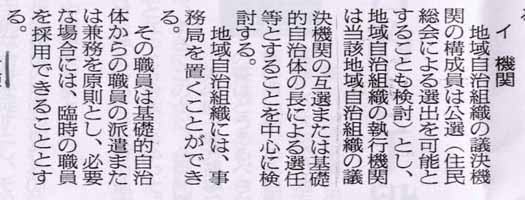 イ　機関
地域自治組織の議決機
関の構成員は公選（住民
総会による選出を可能と
することも検討）とし、
地域自治組織の執行機関
は当該地域自治組織の議
決機関の互選または基礎
的自治体の長による選任
等とすることを中心に検
討する。
地域自治組織には、事
務局を置くことができ
る。
その職員は基礎的自治
体からの職員の派遣また
は兼務を原則とし、必要
な場合には、臨時の職員
を採用できることとす
る。